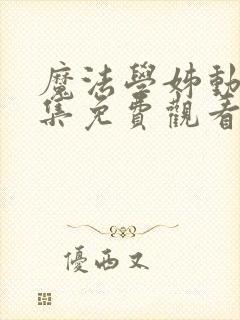 魔法學姊動
集免費觀看
優酒又